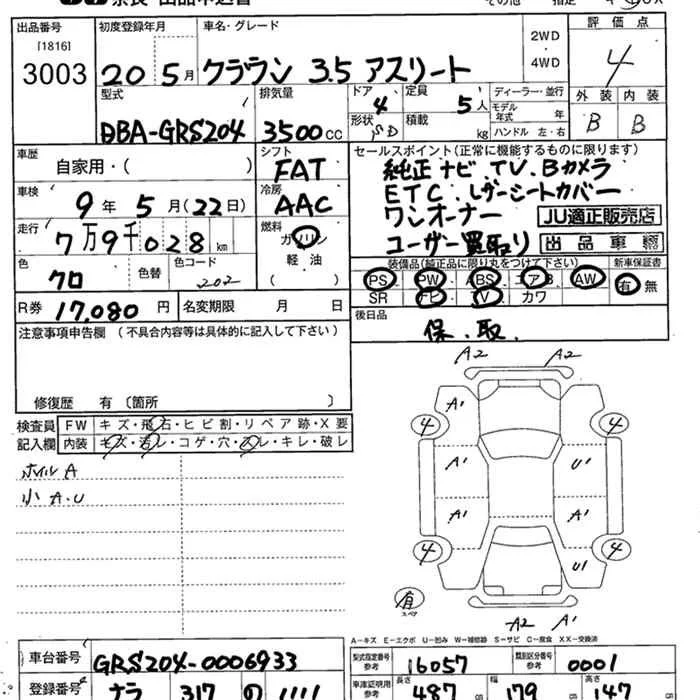 奈良 出品申込書
その他 指定
出品番号 [1816] 3003
初度登録年月 20 5月
車名・グレード クラウン 3.5 アスリート
2WD ・ 4WD
評価点 4
外装 内装
B B
型式 DBA-GRS204
排気量 3500cc
ドア 4 形状 SD
定員 5人 積載 kg
ディーラー・並行
モデル年式 年
ハンドル 左・右
車歴 自家用・( )
シフト FAT
車検 9年 5月(22日)
冷房 AAC
走行 7万9千028km
燃料 ガソリン 軽油 ( )
色 クロ 色替 色コード 202
R券 17,080円 名変期限 月 日
セールスポイント(正常に機能するものに限ります)
純正ナビ.TV.Bカメラ
ETC.レザーシートカバー
ワンオーナー JU適正販売店
ユーザー買取り 出品車輌
装備品(純正品に限り丸をつけて下さい) 新車保証書
PS PW ABS エアB AW 有・無
SR ナビ TV カワ
後日品
保.取.
注意事項申告欄 (不具合内容等は具体的に記入して下さい)
修復歴 有〔箇所 〕
検査員記入欄
FW キズ・飛石・ヒビ割・リペア跡・X要
内装 キズ・汚レ・コゲ・穴・スレ・キレ・破レ
ホイルA
小A.U
A2 A2
A1
4 4
A1 U1
A1 A1
4 4
U1
有 スペア
A2 A1
A-キズ E-エクボ U-凹み W-補修跡 S-サビ C-腐食 XX-交換済
車台番号 GRS204-0006933
型式指定番号 参考 16057
類別区分番号 参考 0001
登録番号 ナラ 317 の 1111
車庫証明用 参考 長さ 487 幅 179 高さ 147